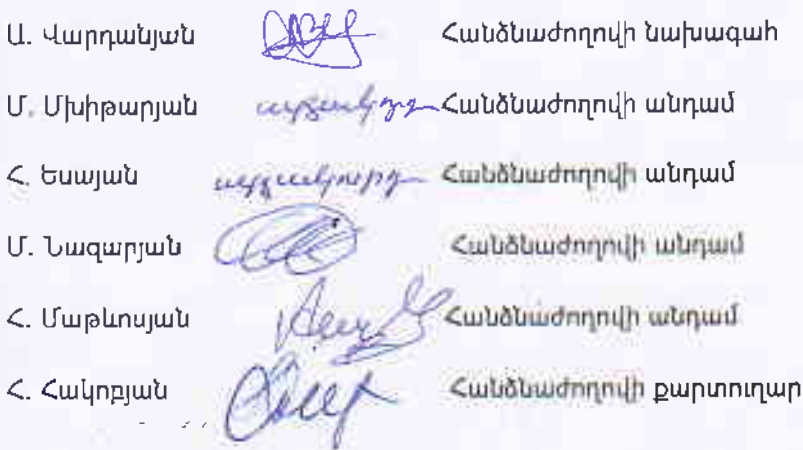 Ա. Վարդանյան Հանձնաժողովի նախագահ
Մ. Մխիթարյան արձակուրդ Հանձնաժողովի անդամ
Հ. Եսայան արձակուրդ Հանձնաժողովի անդամ
Մ. Նազարյան Հանձնաժողովի անդամ
Հ. Մաթևոսյան Հանձնաժողովի անդամ
Հ. Հակոբյան Հանձնաժողովի քարտուղար